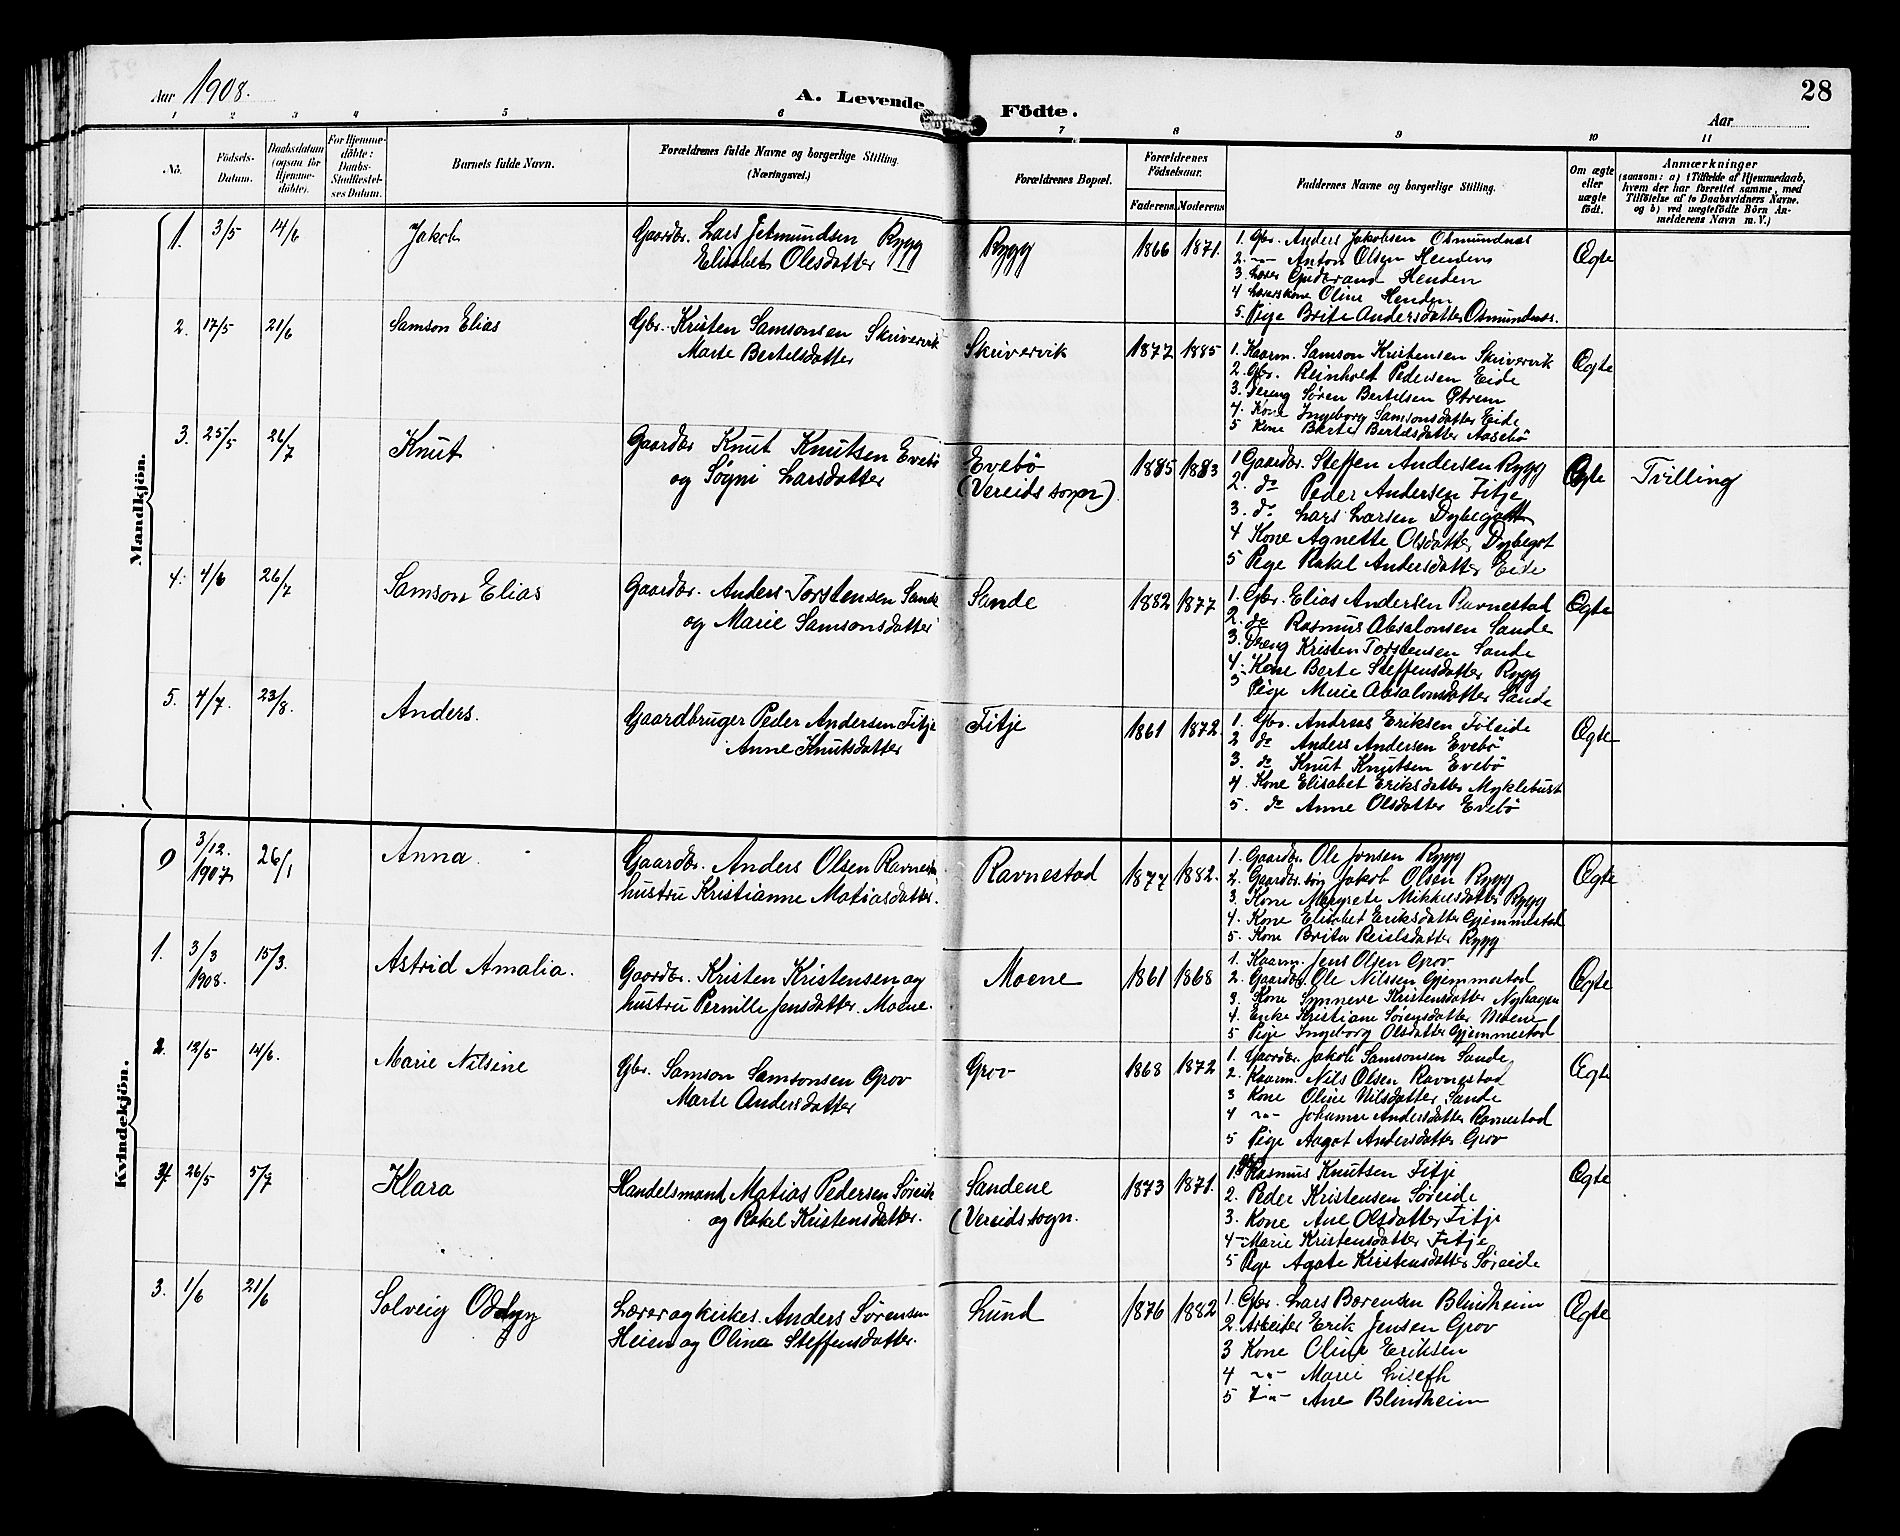 Aar 1908.
A. Levende Födte.
28
Aar
1 2 3 4 5 6 7 8 9 10 11
No.
Födsels-Datum.
Daabsdatum (ogsaa för Hjemme-döbte).
For Hjemme-döbte: Daabs-Stadfæstel-ses Datum.
Barnets fulde Navn.
Forældrenes fulde Navne og borgerlige Stilling. (Næringsvei.)
Forældrenes Bopæl.
Forældrenes Födselsaar.
Faderens. Moderens.
Faddernes Navne og borgerlige Stilling.
Om ægte eller uægte födt.
Anmærkninger
(saasom: a) i Tilfælde af Hjemmedaab,
hvem der har forrettet samme, med
Tilföielse af to Daabsvidners Navne.
og b) ved uægtefödte Börn An-
melderens Navn m. V.)
Mandkjön.
1. 3/5 14/6 Jakob
Gaardbr. Lars Jetmundsen Rygg
Elisabet Olesdatter
Rygg 1866 1871.
1. Gbr. Anders Jakobsen Osmundnes
2. -"- Anton Olsen Henden
3. Lærer Gudbrand Henden
4 Lærerskone Oline Henden
5. Pige Brite Andersdatter Osmundnes.
Ægte
2. 17/5 21/6 Samson Elias
Gbr. Kristen Samsonsen Skrivervik
Marte Bertelsdatter
Skrivervik 1877 1885
1. Kaarm. Samson Kristensen Skrivervik
2. Gbr. Reinholt Pedersen Eide
3. Dreng Søren Bertelsen Otrem
4. Kone Ingeborg Samsonsdatter Eide
5 Kone Berte Bertelsdatter Aasebö
Ægte
3. 25/5 26/7 Knut
Gaardbr Knut Knutsen Evebö
og Søgni Larsdatter
Evebö
(Vereids sogn).
1885 1883
1 Gaardbr. Steffen Andersen Rygg
2. do Peder Andersen Fitje
3. do Lars Larsen Dybegot
4 Kone Agnette Olsdatter Dybegot
5 Pige Rakel Andersdatter Eide
Ægte
Tvilling
4. 4/6 26/7 Samson Elias
Gaardbr. Anders Torstensen Sande
og Marie Samsonsdatter
Sande 1882 1877
1. Gbr. Elias Andersen Ravnestad
2. do Rasmus Absalonsen Sande
3. Dreng Kristen Torstensen Sande
4. Kone Berte Steffensdatter Rygg
5 Pige Marie Absalonsdatter Sande
Ægte
5. 4/7. 23/8. Anders.
Gaardbruger Peder Andersen Fitje
Anne Knutsdatter
Fitje 1861 1872.
1. Gbr. Andreas Eriksen Føleide
2 do Anders Andersen Evebö
3. do Knut Knutsen Evebö
4. Kone Elisabet Eriksdatter Myklebust
5. do Anne Olsdatter Evebö
Ægte
Kvindekjön.
0 3/12. 1907 26/1 Anna.
Gaardbr. Anders Olsen Ravnestad
hustru Kristianne Matiasdatter.
Ravnestad 1877 1882.
1. Gaardbr. Ole Jonsen Rygg
2. Gaardbr. søn Jakob Olsen Rygg
3. Kone Margrete Mikkelsdatter Rygg
4. Kone Elisabet Eriksdatter Gjemmestad
5. Kone Brita Reielsdatter Rygg
Ægte
1. 3/3 1908. 15/3. Astrid Amalia.
Gaardbr. Kristen Kristensen og
hustru Pernille Jensdatter Moene.
Moene 1861 1868
1. Kaarm. Jens Olsen Grov
2. Gaardbr. Ole Nilssen Gjemmestad
3. Kone Synneve Kristensdatter Nyhagen
4. Enke Kristiane Sørensdatter Moene
5 Pige Ingeborg Olsdatter Gjemmestad
Ægte
2. 12/5 14/6. Marie Nilsine
Gbr. Samson Samsonsen Grov
Marte Andersdatter
Grov 1868 1872
1. Gaardbr. Jakob Samsonsen Sande
2. Kaarm. Nils Olsen Ravnestad
3 Kone Oline Nilsdatter Sande
4 -"- Johanne Andersdatter Ravnestad
5 Pige Aagot Andersdatter Grov
Ægte
26/5 5/7 Klara
Handelsmand Matias Pedersen Søreide
og Rakel Kristensdatter.
Sandene
(Vereids sogn.
1873 1871.
1. Rasmus Knutsen Fitje
2. Peder Kristensen Søreide
3. Kone Ane Olsdatter Fitje
4 Marie Kristensdatter Fitje
5 Pige Agate Kristensdatter Søreide
Ægte
3. 1/6 21/6 Solveig Oddlyg
Lærer og kirkes. Anders Sørensen
Heien og Olina Steffensdatter.
Lund 1876 1882
1. Gbr. Lars Børensen Blindheim
2. Arbeider Erik Jensen Grov
3 Kone Oline Eriksen
4 -"- Marie Liseth
5 -"- Ane Blindheim
Ægte